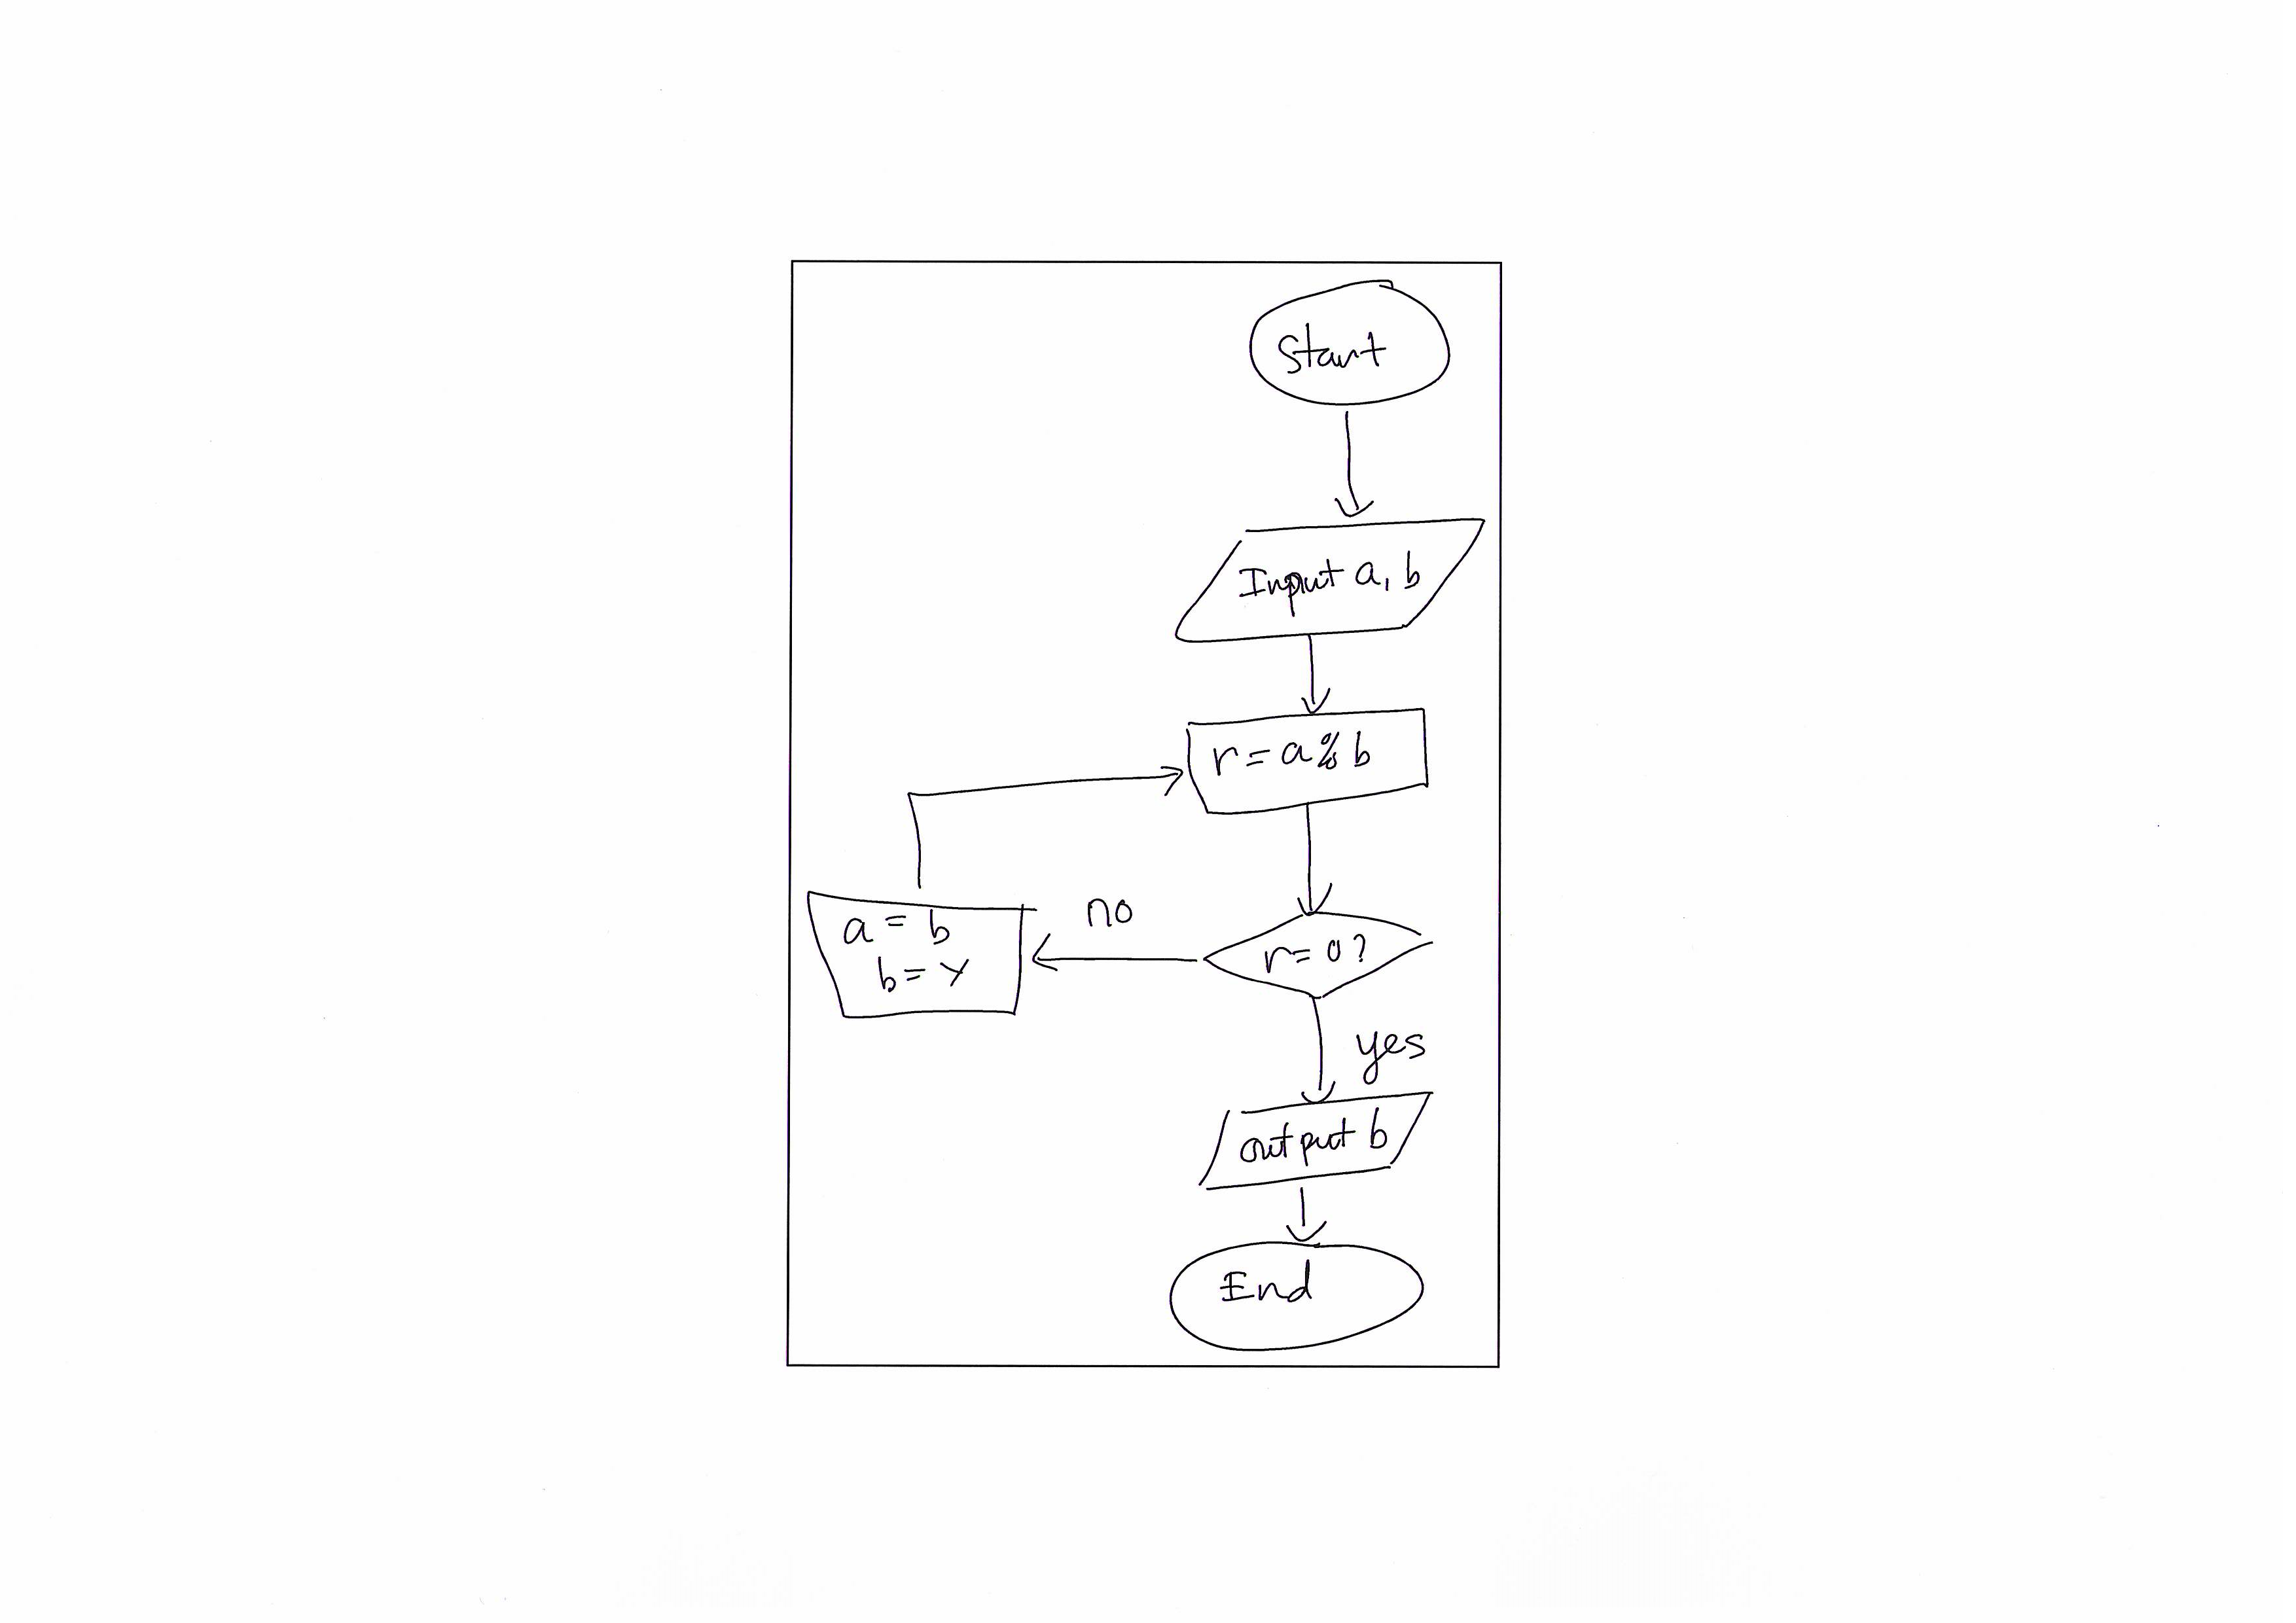 Start
Input a, b
r = a % b
no
a = b
b = r
r = 0 ?
yes
output b
End